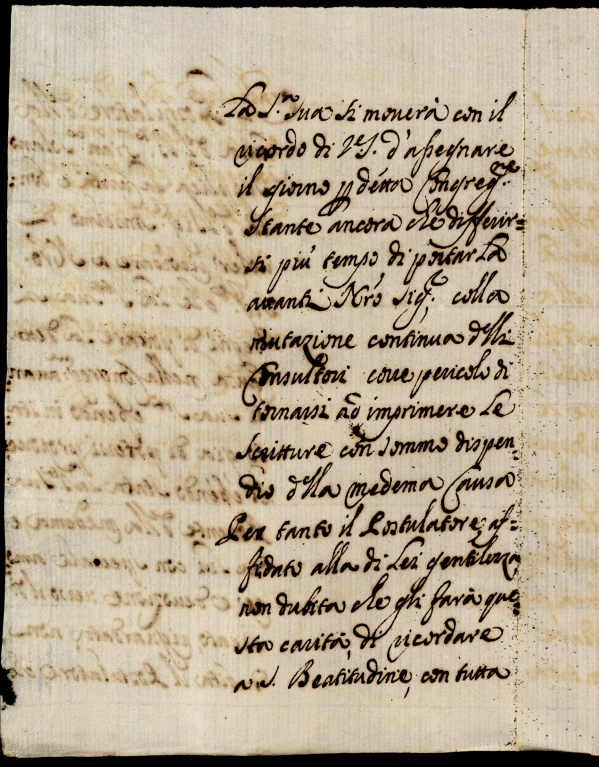 La S.ª Sua si moverà con il
ricordo di V.S. d'assegnare
il giorno p detta Congreg.ne
stante ancora che differir=
si più tempo di portarla
avanti Nro Sig.re colla
mutazione continua delli
Consultori core pericolo di
tornarsi ad imprimere le
scritture con sommo dispen=
dio della medema Causa
Per tanto il Postulatore af=
fidato alla di Lei gentilezza
non dubita che gli farà que=
sta carità, di ricordare
a S. Beatitudine, con tutta